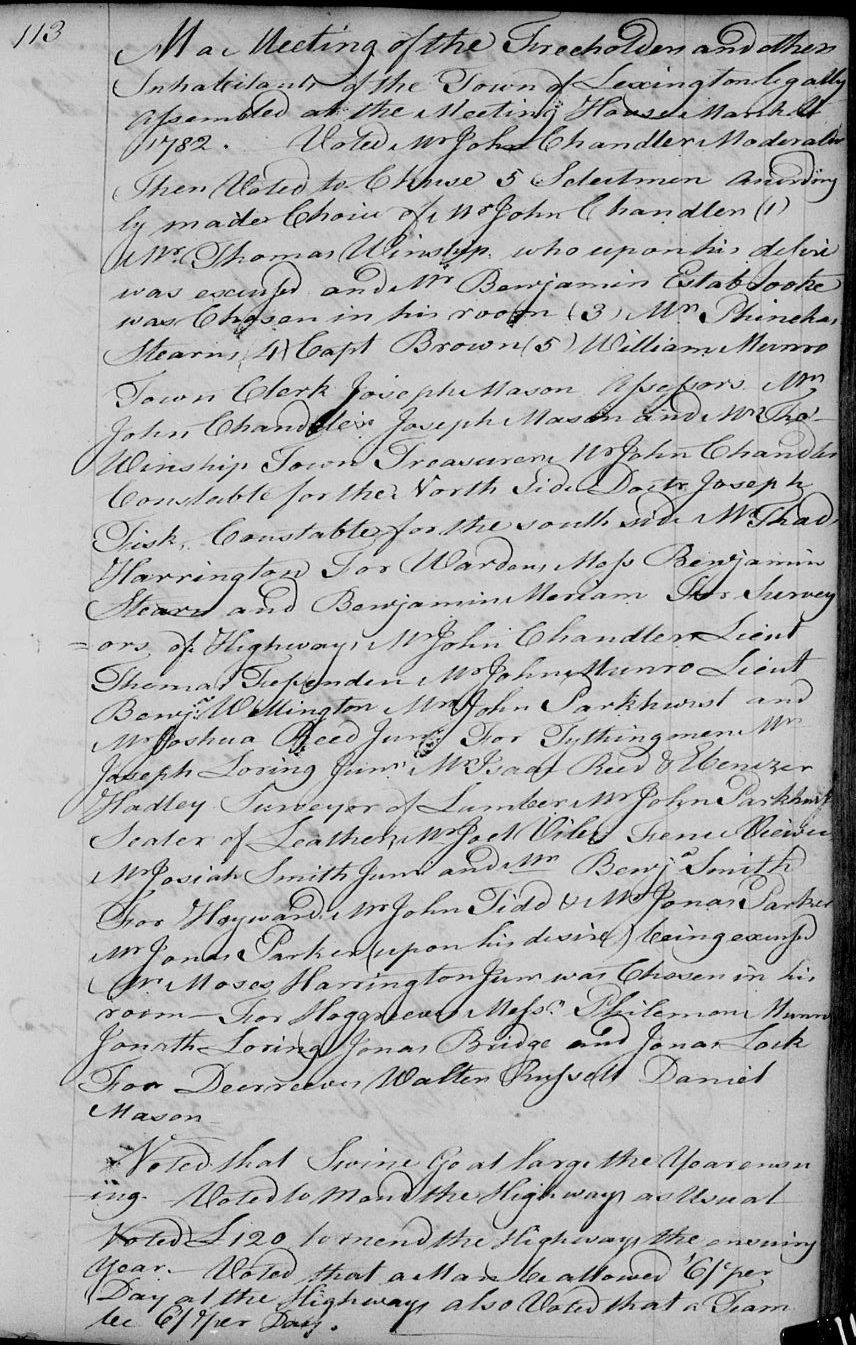 113
At a Meeting of the Freeholders and others
Inhabitants of the Town of Lexington legally
assembled at the Meeting House March 4
1782. Voted Mr John Chandler Moderator
Then Voted to Chuse 5 Selectmen according
ly made Choice of Mr John Chandler (1)
Mr. Thomas Winship who upon his desire
was excused and Mr Benjamin Estabrooke
was Chosen in his room (3) Mr Phinehas
Stearns (4) Capt Brown (5) William Munro
Town Clerk Joseph Mason Assessors Mr
John Chandler Joseph Mason and Mr Thos
Winship Town Treasurer Mr John Chandler
Constable for the North Side Doctr Joseph
Fisk, Constable for the south side Mr Thad
Harrington For Wardens Mess Benjamin
Stearns and Benjamin Meriam For Survey
=ors of Highways Mr John Chandler Lieut
Thomas Fessenden Mr John Munro Lieut
Benja Wellington Mr John Parkhurst and
Mr Joshua Reed Junr For Tythingmen Mr
Joseph Loring Junr Mr Isaac Reed & Ebenezer
Hadley Surveyor of Lumber Mr John Parkhurst
Sealer of Leather Mr Joel Viles Fence Viewers
Mr Josiah Smith Junr and Mr Benja Smith
For Hayward Mr John Tidd & Mr Jonas Parker
Mr Jonas Parker (upon his desire) being excused
Mr Moses Harrington Junr was Chosen in his
room— For Hoggreeves Messrs Philemon Munro
Jonath Loring Jonas Bridge and Jonas Lock
For Deerreeves Walter Russell Daniel
Mason
Voted that Swine Go at large the Year ensu
ing. Voted to Mend the Highways as Usual
Voted £120 to mend the Highways the ensuing
Year— Voted that a Man be allowed 6/ per
Day at the Highways also Voted that a Team
be 6/ per Day.